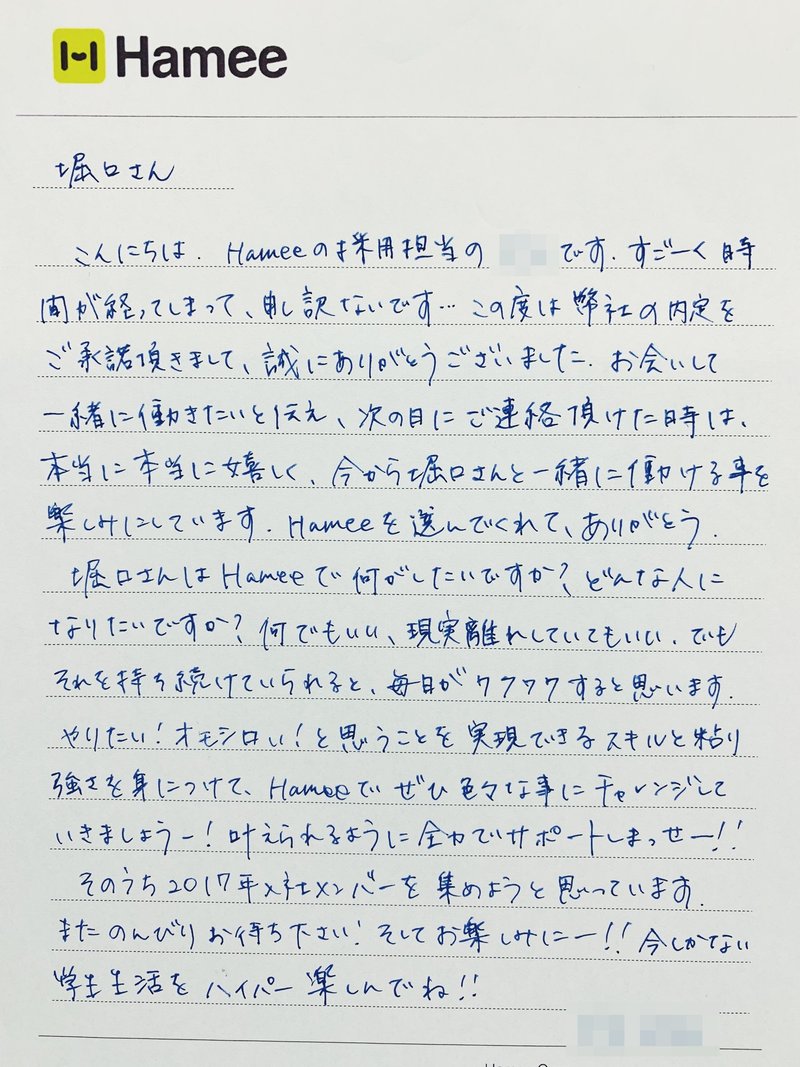 Hamee
堀口さん
こんにちは. Hameeの採用担当の です. すごーく時
間が経ってしまって、申し訳ないです… この度は弊社の内定を
ご承諾頂きまして、誠にありがとうございました. お会いして
一緒に働きたいと伝え、次の日にご連絡頂けた時は、
本当に本当に嬉しく、今から堀口さんと一緒に働ける事を
楽しみにしています. Hameeを選んでくれて、ありがとう.
堀口さんはHameeで何がしたいですか? どんな人に
なりたいですか? 何でもいい、現実離れしていてもいい. でも
それを持ち続けていられると、毎日がワクワクすると思います.
やりたい! オモシロい! と思うことを実現できるスキルと粘り
強さを身につけて、Hameeでぜひ色々な事にチャレンジして
いきましょうー! 叶えられるように全力でサポートしまっせー!!
そのうち2017年入社メンバーを集めようと思っています.
またのんびりお待ち下さい! そしてお楽しみにー!! 今しかない
学生生活をハイパー楽しんでね!!